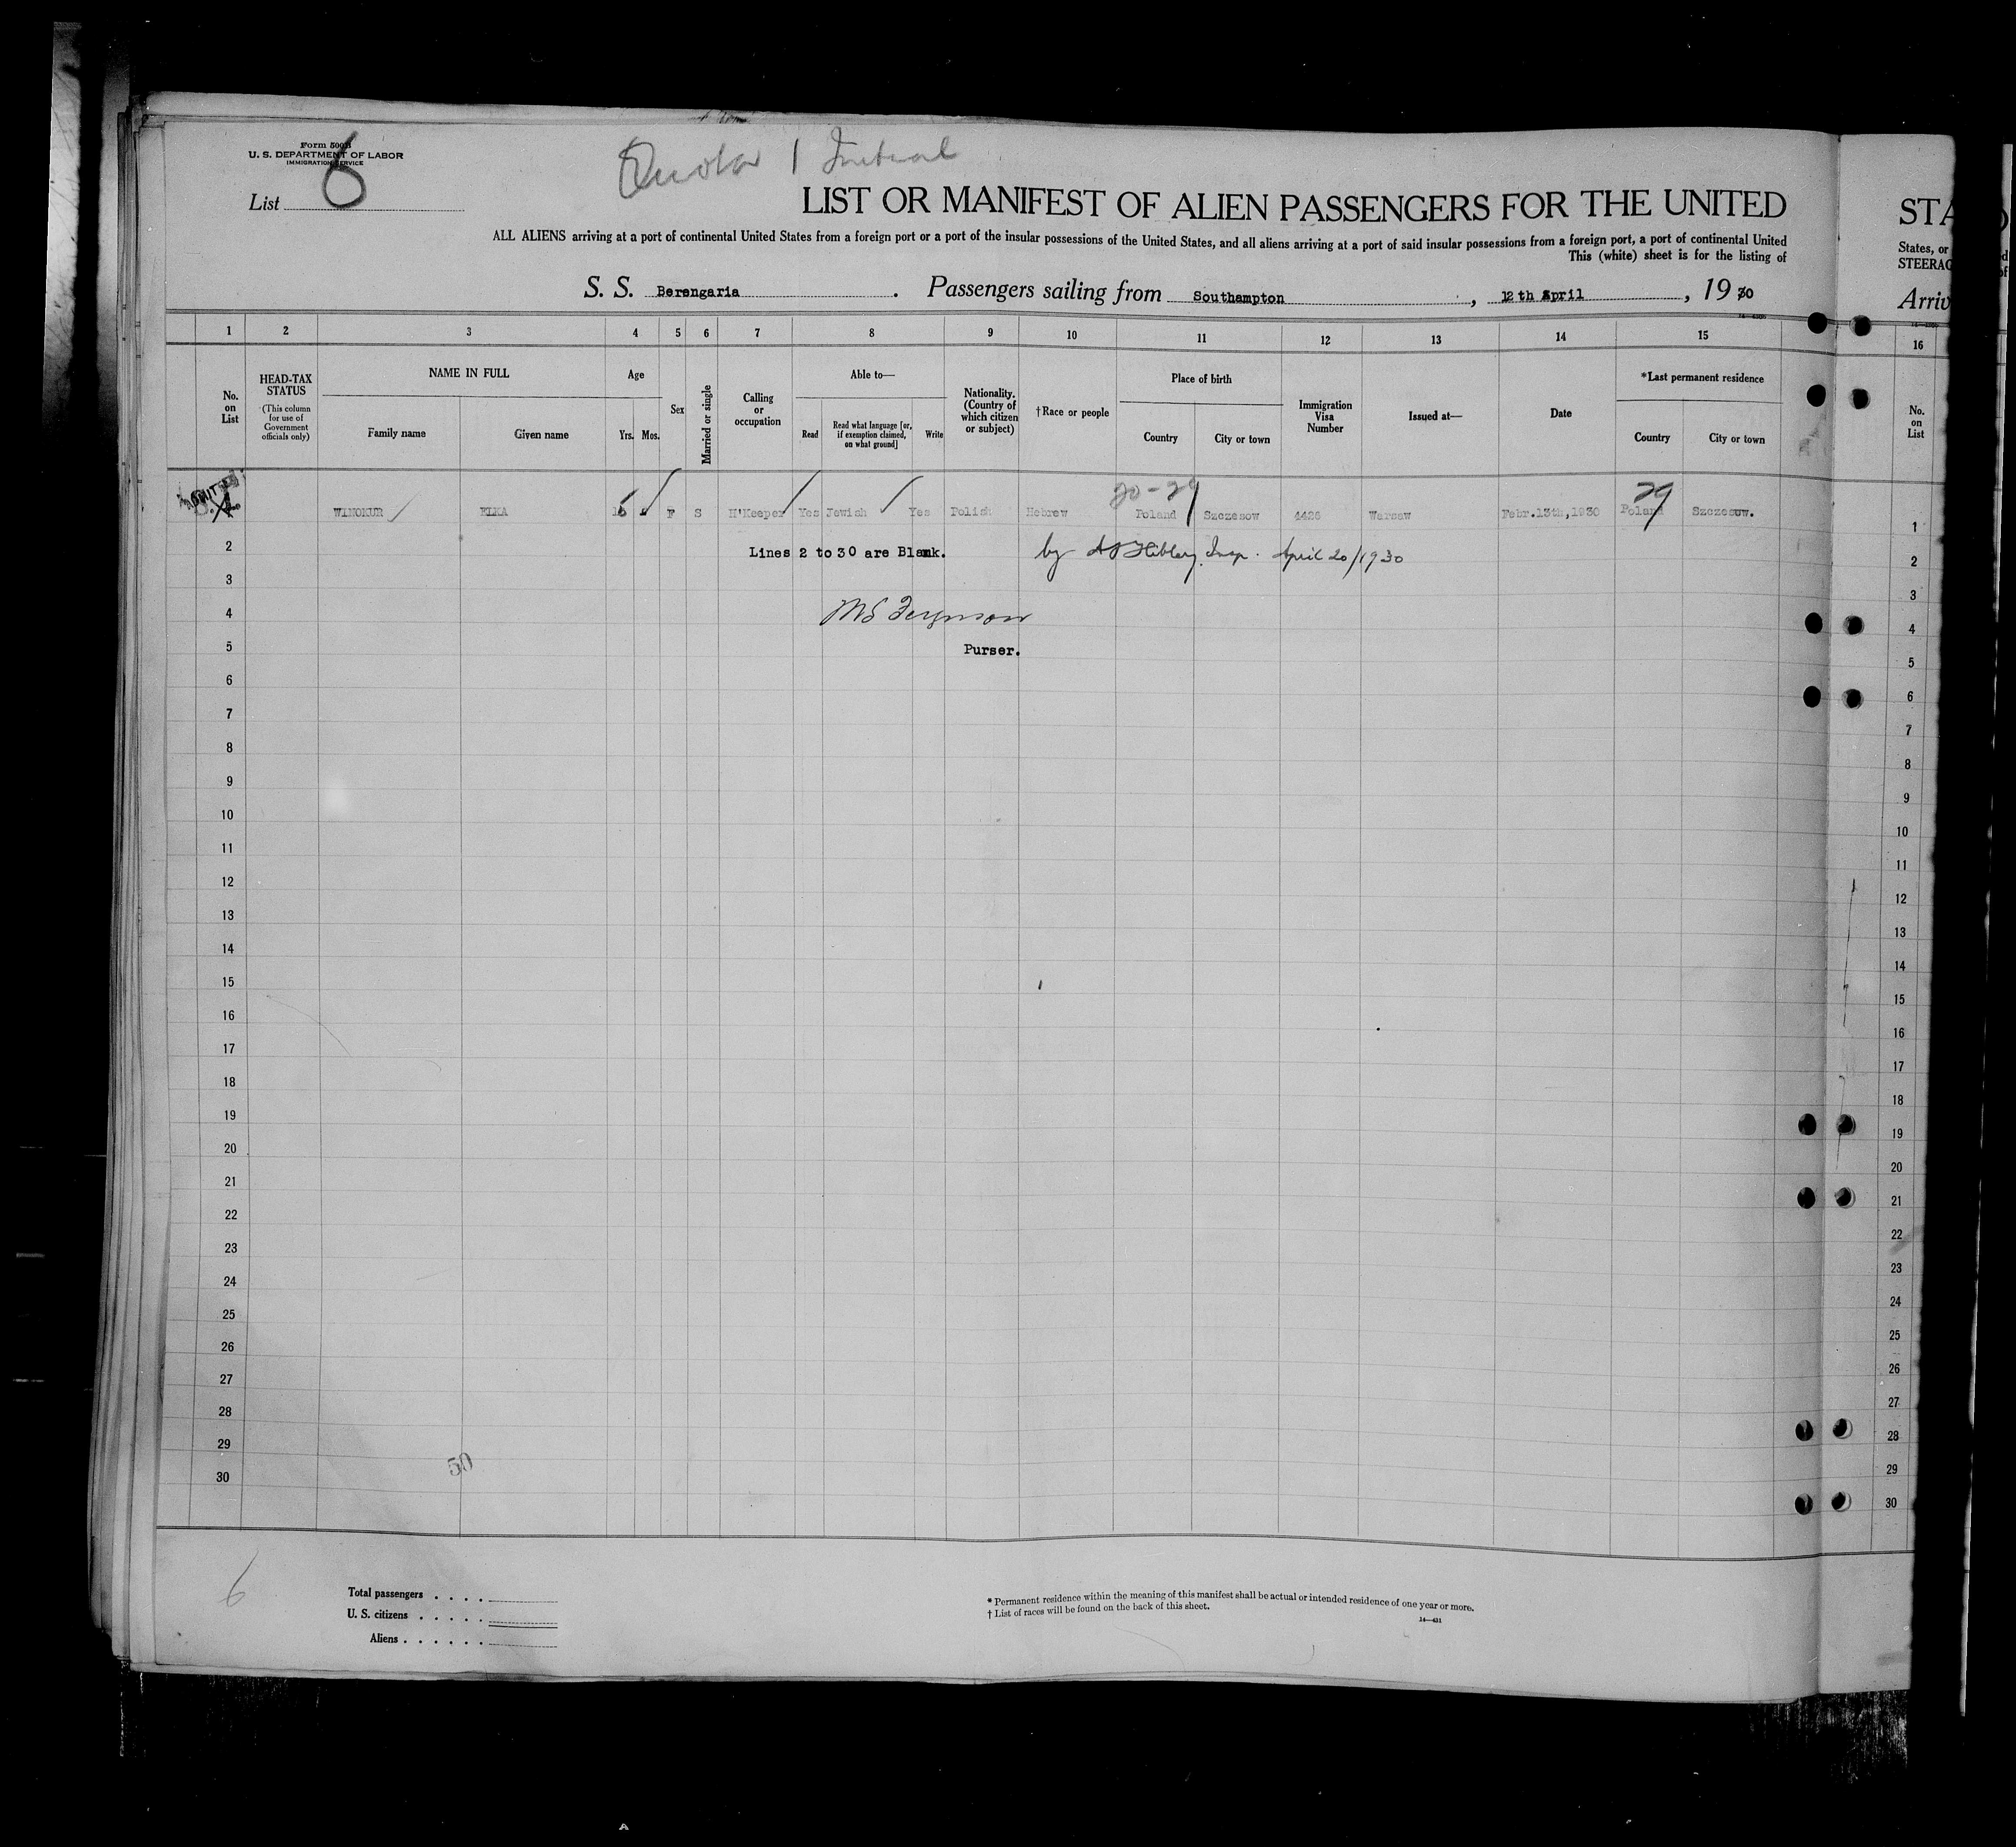 Form 500 B
U. S. DEPARTMENT OF LABOR
IMMIGRATION SERVICE
List 6
Quota 1
LIST OR MANIFEST OF ALIEN PASSENGERS FOR THE UNITED
STA
ALL ALIENS arriving at a port of continental United States from a foreign port or a port of the insular possessions of the United States, and all aliens arriving at a port of said insular possessions from a foreign port, a port of continental United
States, or
This (white) sheet is for the listing of
STEERAG
S. S. Berengaria. Passengers sailing from Southampton, 12th April, 1930
Arriv
1 2 3 4 5 6 7 8 9 10 11 12 13 14 15 16
No. on List
HEAD-TAX STATUS
(This column for use of Government officials only)
NAME IN FULL
Family name
Given name
Age
Yrs. Mos.
Sex
Married or single
Calling or occupation
Able to—
Read
Read what language [or, if exemption claimed, on what ground]
Write
Nationality. (Country of which citizen or subject)
†Race or people
Place of birth
Country
City or town
Immigration Visa Number
Issued at—
Date
*Last permanent residence
Country
City or town
No. on List
20-29
29
ADMITTED
WINOKUR F S H'Keeper Yes Jewish Yes Polish Hebrew Poland Szczesow 4426 Warsaw Febr.13th,1930 Poland Szczesuw. 1
2 Lines 2 to 30 are Blank. by Insp. April 20/1930 2
3 3
4 Ferguson 4
5 Purser. 5
6 6
7 7
8 8
9 9
10 10
11 11
12 12
13 13
14 14
15 15
16 16
17 17
18 18
19 19
20 20
21 21
22 22
23 23
24 24
25 25
26 26
27 27
28 28
29 29
30 30
50
6
Total passengers . . . .
U. S. citizens . . . . .
Aliens . . . . . .
* Permanent residence within the meaning of this manifest shall be actual or intended residence of one year or more.
† List of races will be found on the back of this sheet.
14—431